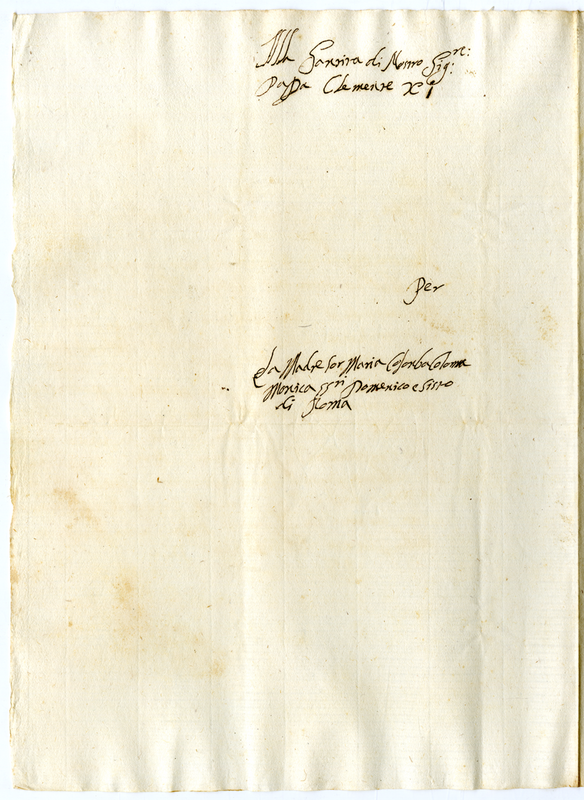 Alla Santita di Nostro Sig.re:
Papa Clemente XI
Per
La Madre Sor Maria Colomba
Monica SS.ti Domenico e Sisto
di Roma